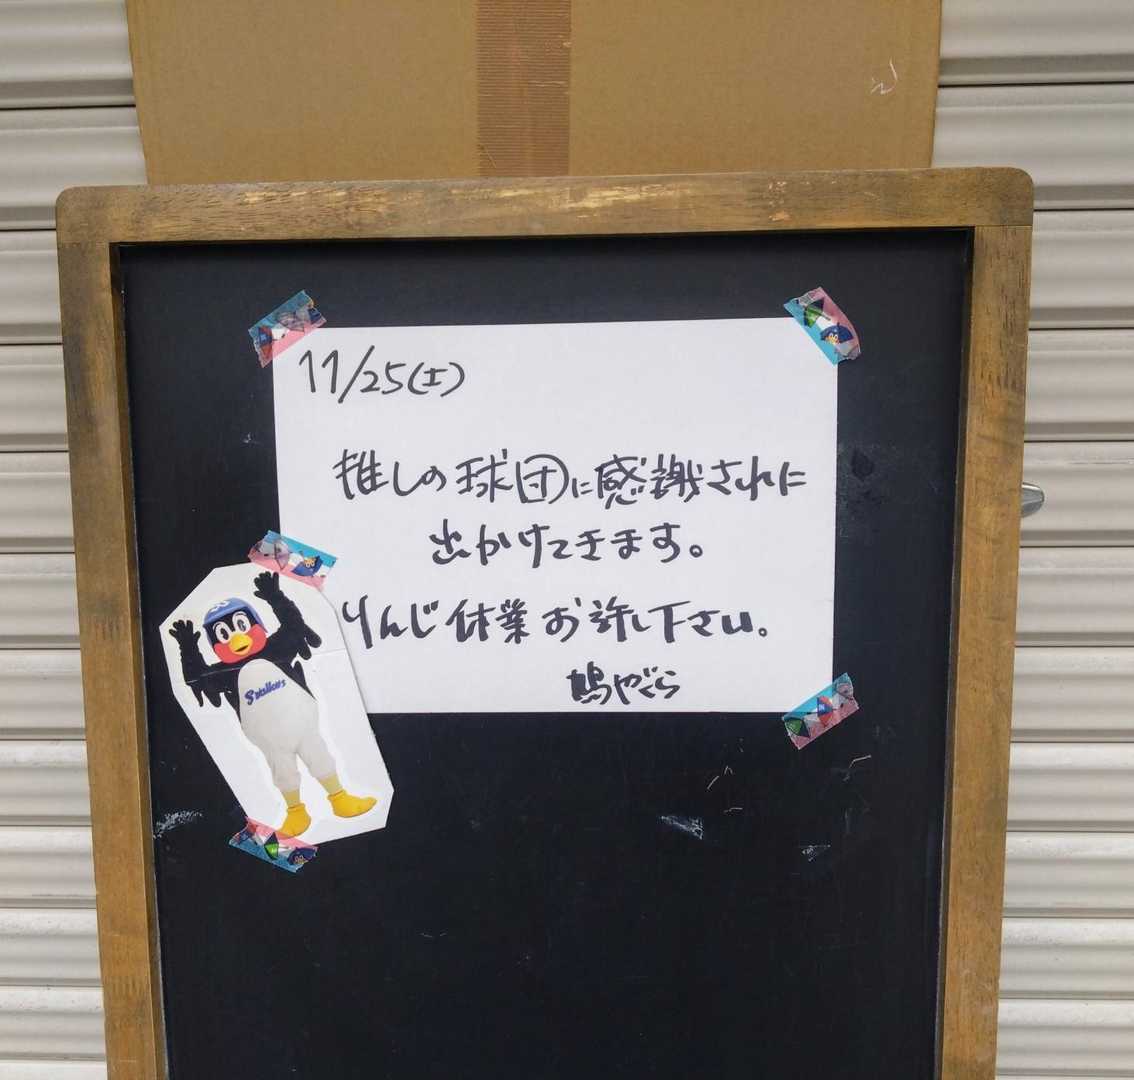 11/25(土)
推しの球団に感謝されに
出かけてきます。
りんじ休業お許し下さい。
鳩やぐら
Swallows